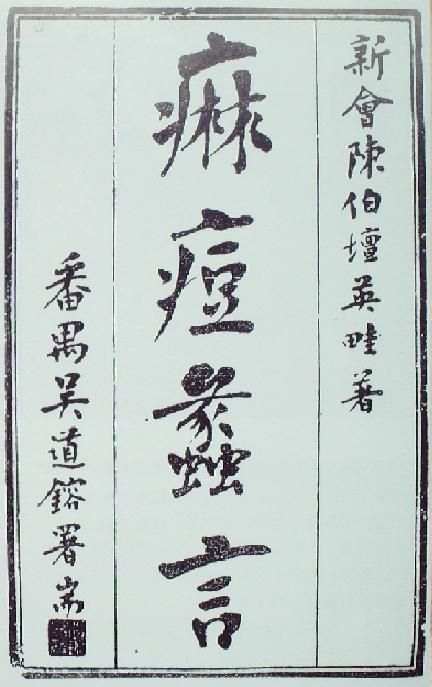 新會陳伯壇英畦著
痳痘蠡言
番禺吳道鎔署耑